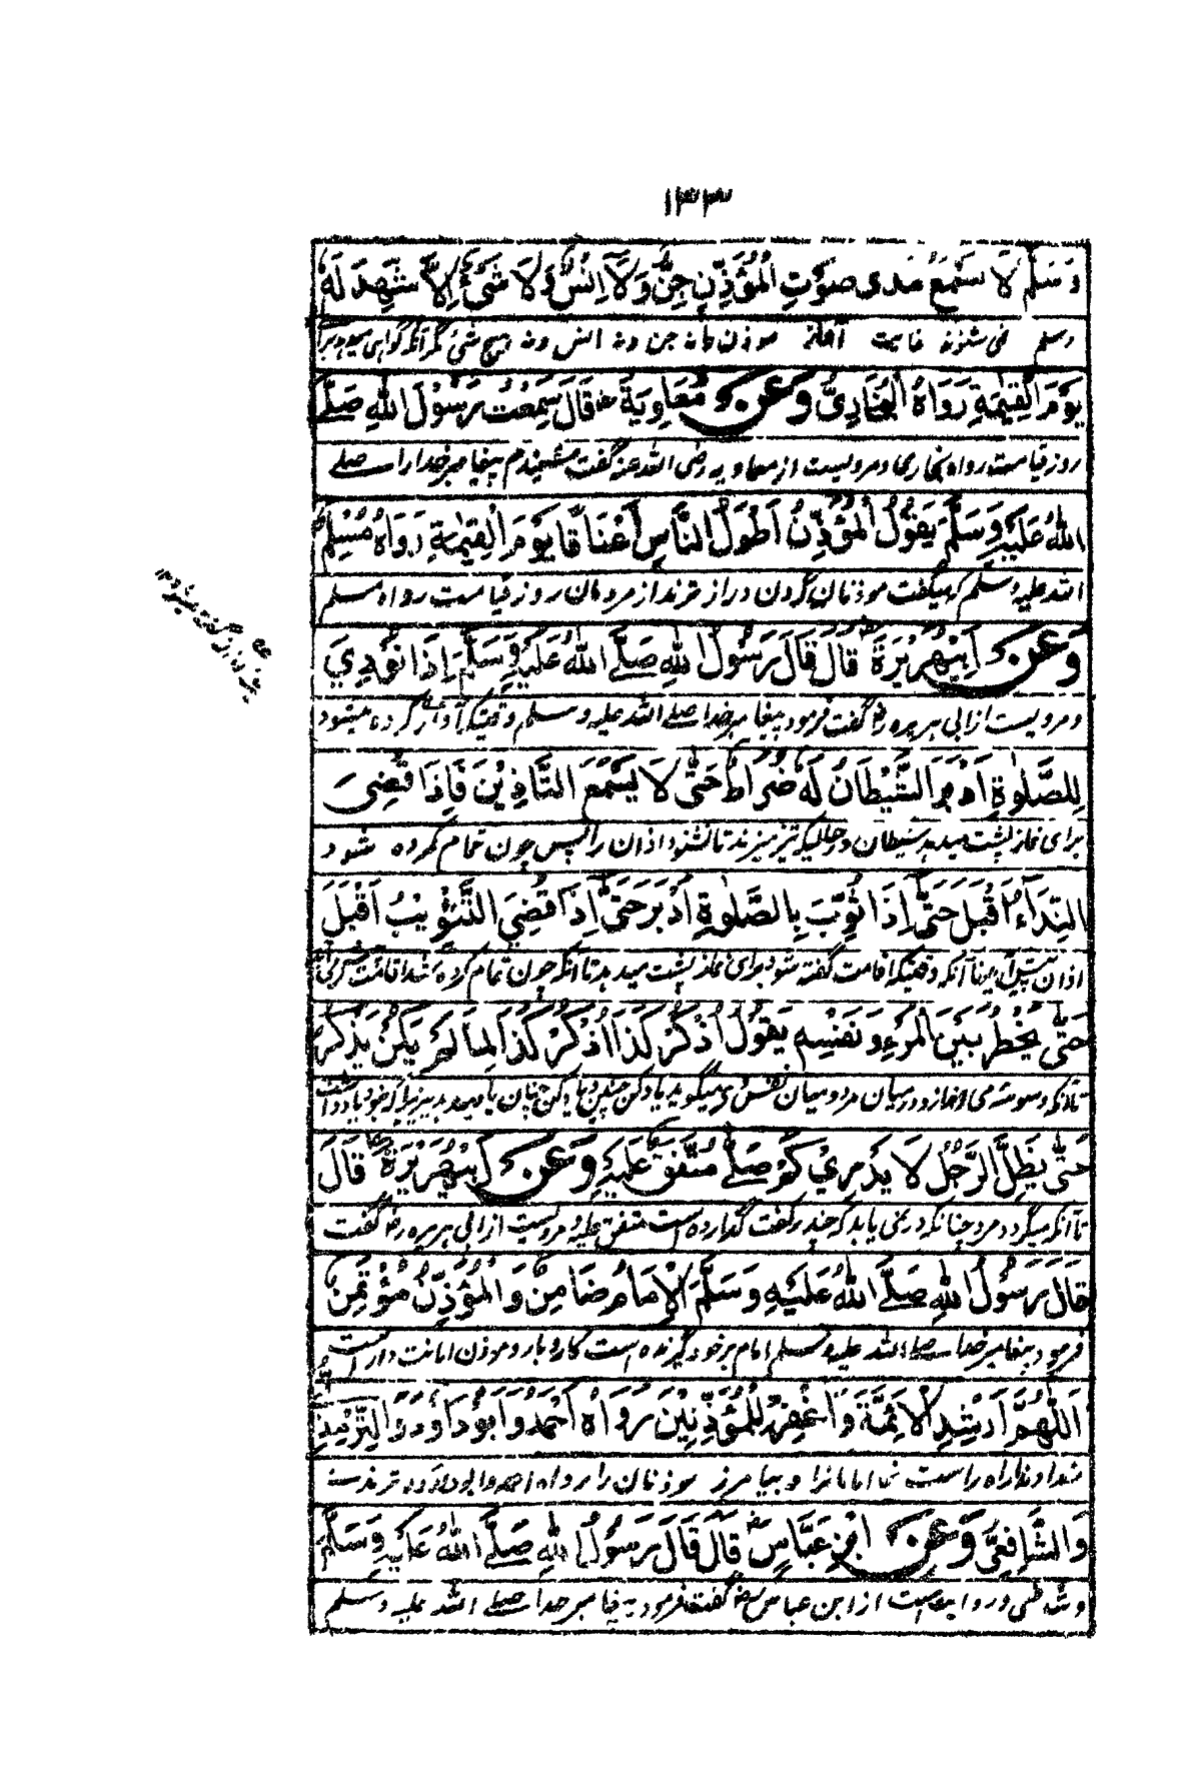 ١٣٣
وَسَلَّمَ لَا يَسْمَعُ مَدٰى صَوْتِ الْمُؤَذِّنِ جِنٌّ وَلَا اِنْسٌ وَلَا شَيْءٌ اِلَّا شَهِدَ لَهٗ
وسلم نمی شنوند غایت آواز موذن را نه جن ونه انس ونه هیچ شی مگر آنکه گواهی
يَوْمَ الْقِيٰمَةِ رَوَاهُ الْبُخَارِيُّ وَعَنْ مُعَاوِيَةَ رض قَالَ سَمِعْتُ رَسُوْلَ اللّٰهِ صَلَّى
روز قیامت رواه بخاری ومرویست از معاویه رضی الله عنه گفت شنیدم پیغامبر خدا را صلے
اللّٰهُ عَلَيْهِ وَسَلَّمَ يَقُوْلُ الْمُؤَذِّنُ اَطْوَلُ النَّاسِ اَعْنَاقًا يَوْمَ الْقِيٰمَةِ رَوَاهُ مُسْلِمٌ
الله علیه وسلم که میگفت موذنان گردن دراز ترند از مردمان روز قیامت رواه مسلم
وَعَنْ اَبِيْ هُرَيْرَةَ رض قَالَ قَالَ رَسُوْلُ اللّٰهِ صَلَّى اللّٰهُ عَلَيْهِ وَسَلَّمَ اِذَا نُوْدِيَ
ومرویست از ابی هریره رض گفت فرمود پیغامبر خدا صلے الله علیه وسلم وقتیکه آواز کرده میشود
لِلصَّلٰوةِ اَدْبَرَ الشَّيْطَانُ لَهٗ ضُرَاطٌ حَتّٰى لَا يَسْمَعَ التَّاذِيْنَ فَاِذَا قُضِيَ
برای نماز پشت میدهد شیطان در حالیکه تیز میزند تا نشنود اذان را پس چون تمام کرده شود
النِّدَآءُ اَقْبَلَ حَتّٰى اِذَا ثُوِّبَ بِالصَّلٰوةِ اَدْبَرَ حَتّٰى اِذَا قُضِيَ التَّثْوِيْبُ اَقْبَلَ
اذان پیش آید تا آنکه وقتیکه اقامت گفته شود برای نماز پشت میدهد تا آنکه چون تمام کرده شد اقامت
حَتّٰى يَخْطُرَ بَيْنَ الْمَرْءِ وَنَفْسِهٖ يَقُوْلُ اُذْكُرْ كَذَا اُذْكُرْ كَذَا لِمَا لَمْ يَكُنْ يَذْكُرُ
تا آنکه وسوسه می اندازد درمیان مرد ومیان نفس وی میگوید یاد کن چنین
حَتّٰى يَظِلَّ الرَّجُلُ لَا يَدْرِيْ كَمْ صَلّٰى مُتَّفَقٌ عَلَيْهِ وَعَنْ اَبِيْ هُرَيْرَةَ رض قَالَ
تا آنکه میگردد مرد چنانکه در نمی یابد که چند رکعت گذارده است متفق علیه ومرویست از ابی هریره رض گفت
قَالَ رَسُوْلُ اللّٰهِ صَلَّى اللّٰهُ عَلَيْهِ وَسَلَّمَ الْاِمَامُ ضَامِنٌ وَالْمُؤَذِّنُ مُؤْتَمَنٌ
فرمود پیغامبر خدا صلے الله علیه وسلم امام برخود گیرنده است کاروبار وموذن امانت دار است
اَللّٰهُمَّ اَرْشِدِ الْاَئِمَّةَ وَاغْفِرْ لِلْمُؤَذِّنِيْنَ رَوَاهُ اَحْمَدُ وَاَبُوْدَاوٗدَ وَالتِّرْمِذِيُّ
خداوندا راه راست امامانرا وبیامرز موذنان را رواه احمد وابوداؤد وترمذی
وَالشَّافِعِيُّ وَعَنْ ابْنِ عَبَّاسٍ رض قَالَ قَالَ رَسُوْلُ اللّٰهِ صَلَّى اللّٰهُ عَلَيْهِ وَسَلَّمَ
وشافعی وروایت است از ابن عباس رض گفت فرمود پیغامبر خدا صلے الله علیه وسلم